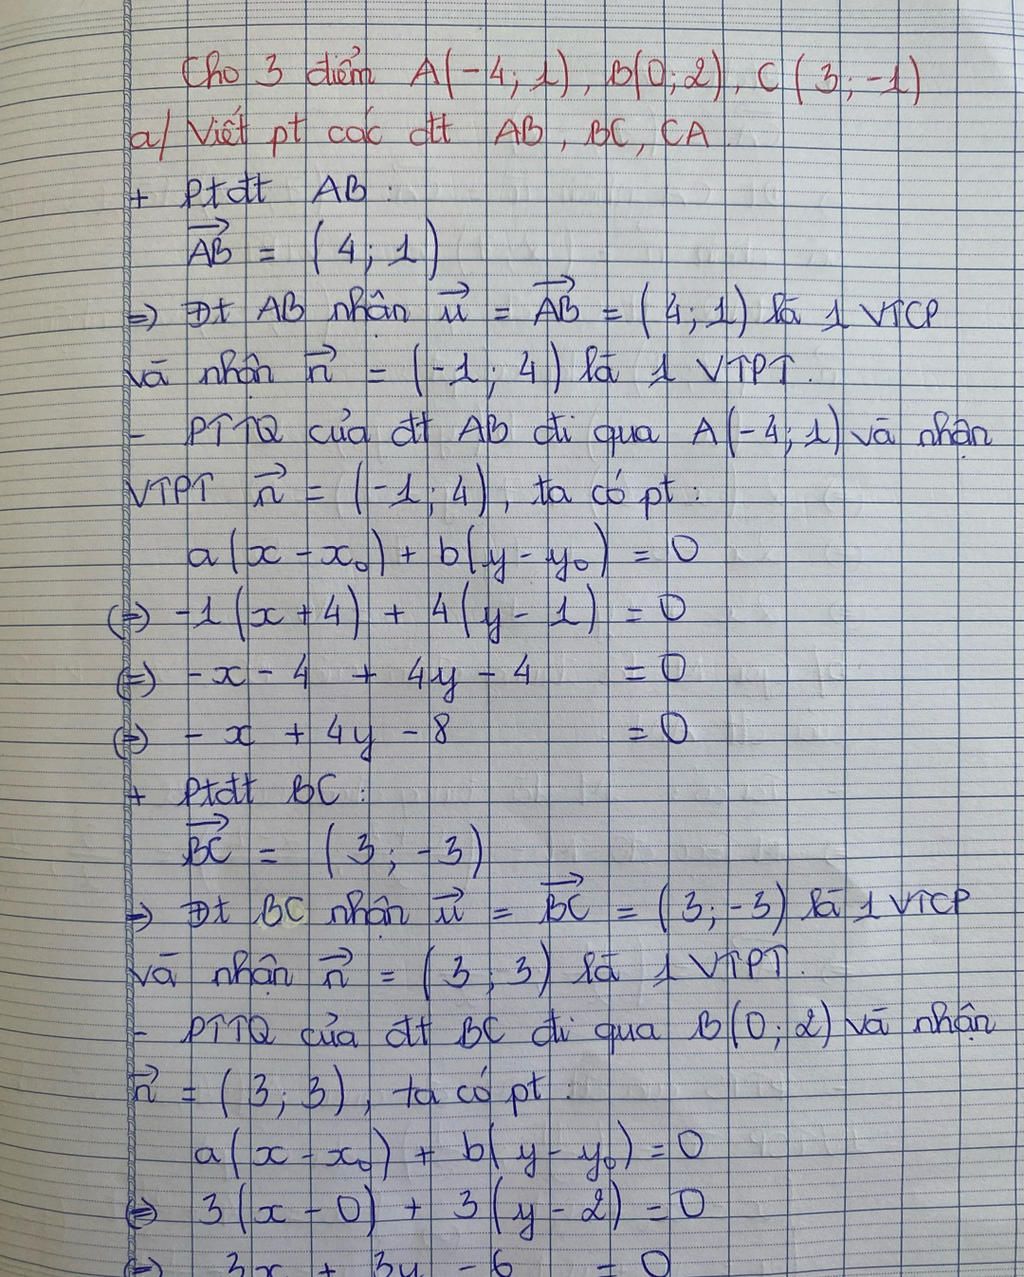 Cho 3 điểm A(-4; 1), B(0; 2), C(3; -1)
a/ Viết pt các đt AB, BC, CA.
+ Ptđt AB:
$\overrightarrow{AB}$ = (4; 1)
=> Đt AB nhận $\vec{u}$ = $\overrightarrow{AB}$ = (4; 1) là 1 VTCP
và nhận $\vec{n}$ = (-1; 4) là 1 VTPT.
- PTTQ của đt AB đi qua A(-4; 1) và nhận
VTPT $\vec{n}$ = (-1; 4), ta có pt:
a(x - x₀) + b(y - y₀) = 0
(=) -1(x + 4) + 4(y - 1) = 0
(=) -x - 4 + 4y - 4 = 0
(=) - x + 4y - 8 = 0
+ Ptđt BC:
$\overrightarrow{BC}$ = (3; -3)
=> Đt BC nhận $\vec{u}$ = $\overrightarrow{BC}$ = (3; -3) là 1 VTCP
và nhận $\vec{n}$ = (3; 3) là 1 VTPT.
- PTTQ của đt BC đi qua B(0; 2) và nhận
$\vec{n}$ = (3; 3), ta có pt:
a(x - x₀) + b(y - y₀) = 0
(=) 3(x - 0) + 3(y - 2) = 0
(=) 3x + 3y - 6 = 0